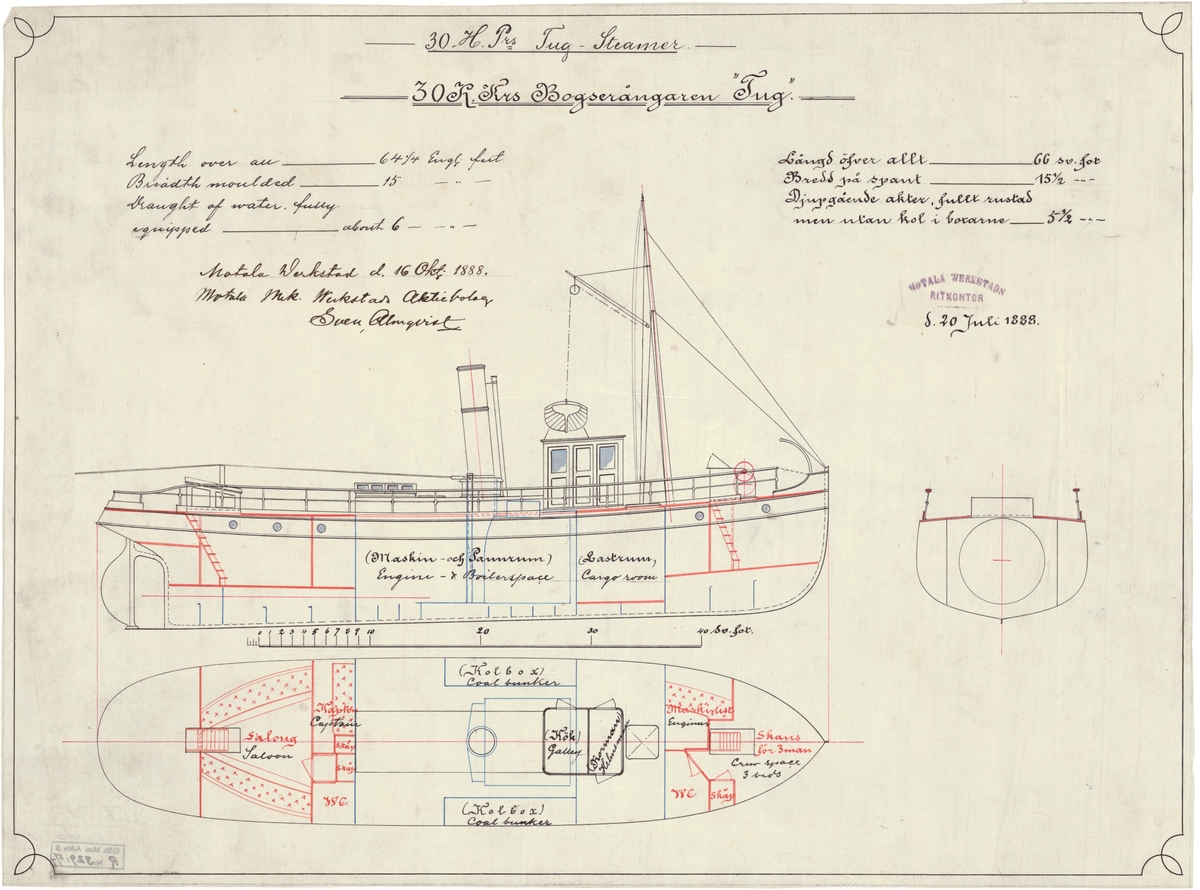 30 H. Prs Tug-Steamer.
30 K. Krs Bogserångaren "Tug".
Length over all 64 1/4 Engl. feet
Breadth moulded 15 — " —
Draught of water, fully
equipped about 6 — " —
Längd öfver allt 66 sv. fot
Bredd på spant 15 1/2 — " —
Djupgående akter, fullt rustad
men utan kol i boxarne 5 1/2 — " —
Motala Werkstad d. 16 Okt. 1888.
Motala Mek. Werkstads Aktiebolag
Sven Almqvist
MOTALA WERKSTADS
RITKONTOR
d. 20 Juli 1888.
(Maskin- och Pannrum)
Engine- & Boilerspace
(Lastrum)
Cargo room
0 1 2 3 4 5 6 7 8 9 10 20 30 40 sv. fot.
(Kolbox)
Coal bunker
Kapten
Captain
Salong
Saloon
Skåp
Skåp
WC
(Kök)
Galley
(Rorman)
Helmsman
Maskinist
Engineer
Skans
för 3 man
Crew space
3 beds
WC
Skåp
(Kolbox)
Coal bunker